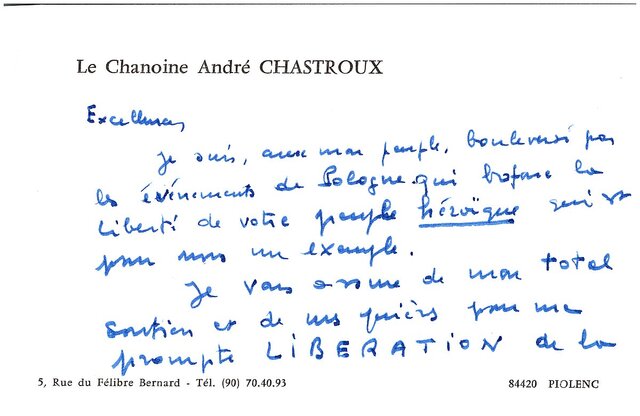 Le Chanoine André CHASTROUX
Excellence,
Je suis, avec mon peuple, bouleversé par
les événements de Pologne qui bafoue la
Liberté de votre peuple héroïque qui est
pour nous un exemple.
Je vous assure de mon total
Soutien et de mes prières pour une
prompte LIBERATION de la
5, Rue du Félibre Bernard - Tél. (90) 70.40.93
84420 PIOLENC